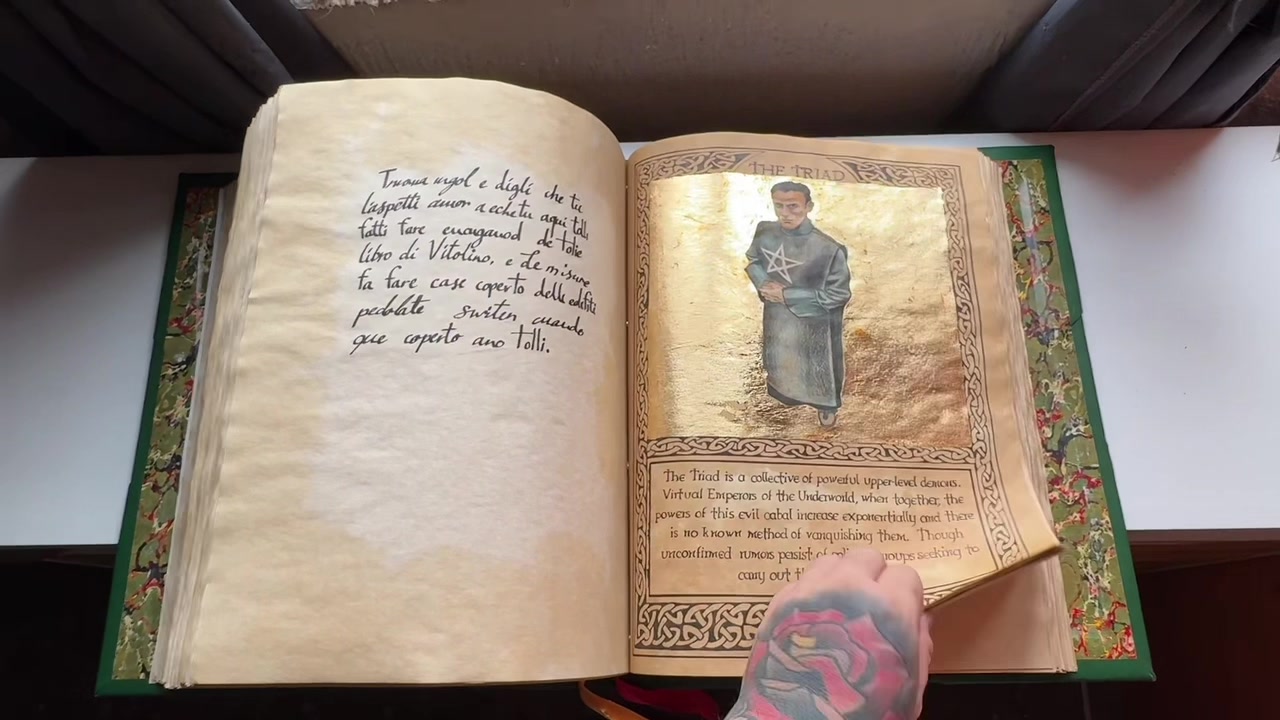 che tu
l'aspetti amor a che tu aqui
fatti fare
libro di Vitolino, e de misure
fa fare case coperto delle
pedolate switen cuando
que coperto ano Tolli.
THE TRIAD
The Triad is a collective of powerful upper-level demons.
Virtual Emperors of the Underworld, when together, the
powers of this evil cabal increase exponentially and there
is no known method of vanquishing them. Though
unconfirmed rumors persist of seeking to
carry out